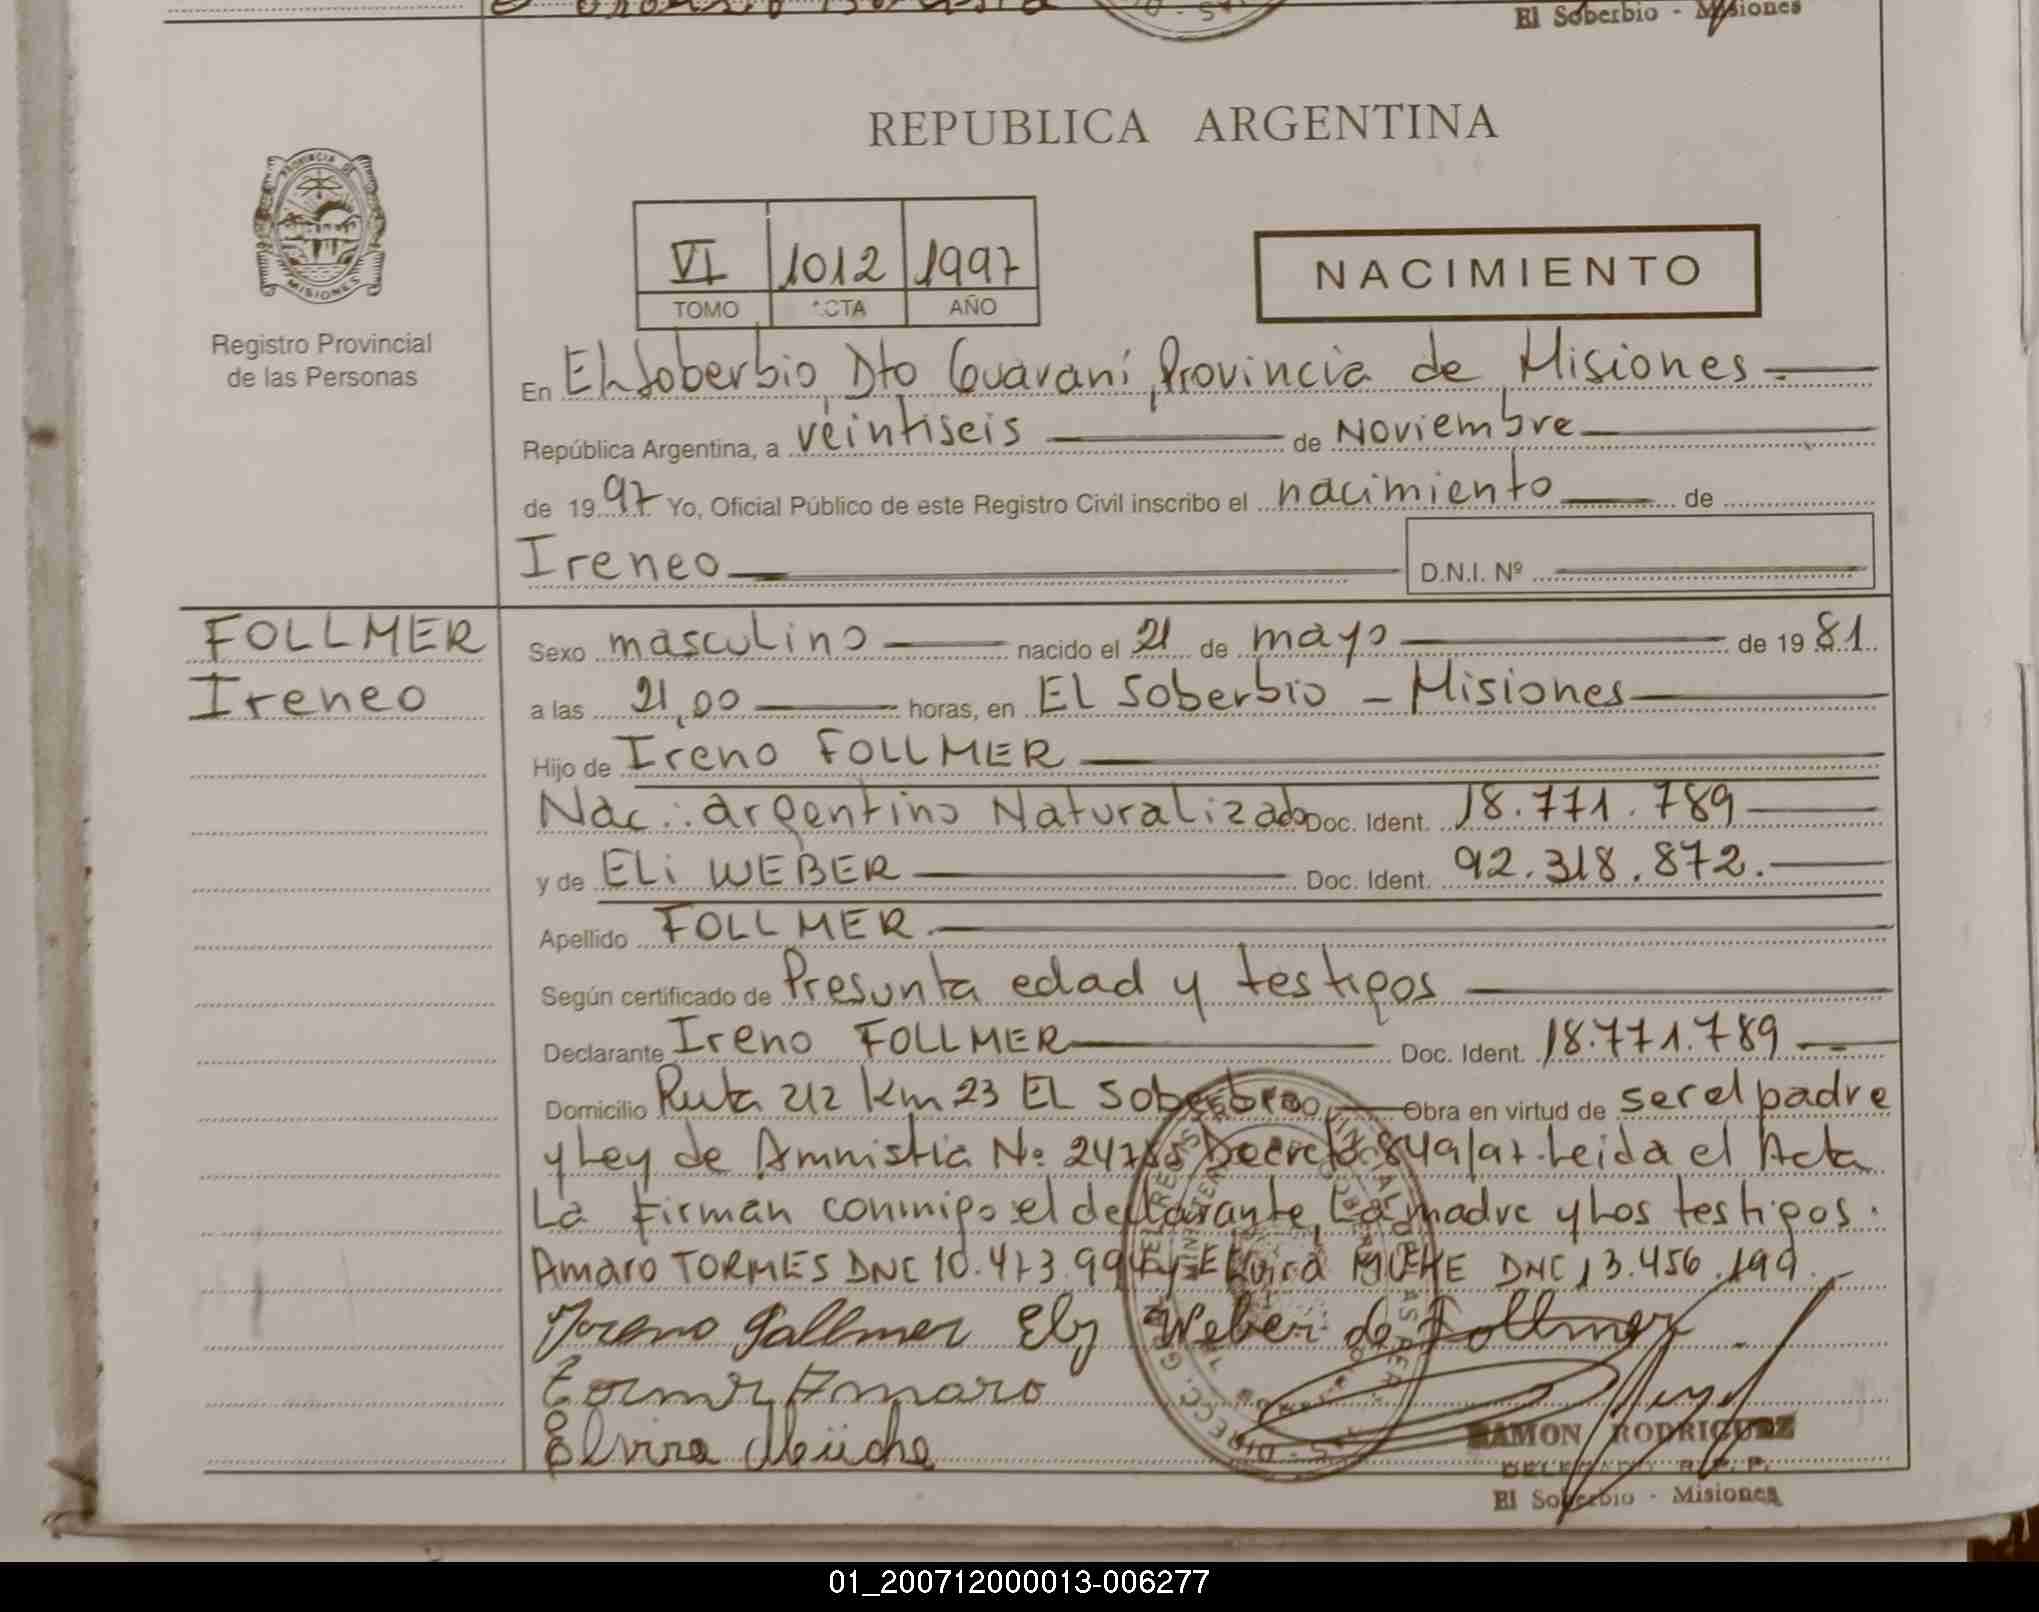 El Soberbio - Misiones
REPUBLICA ARGENTINA
PROVINCIA DE
MISIONES
Registro Provincial
de las Personas
VI 1012 1997
TOMO ACTA AÑO
NACIMIENTO
En El Soberbio, Dto Guaraní, Provincia de Misiones
República Argentina, a veintiseis de Noviembre
de 1997 Yo, Oficial Público de este Registro Civil inscribo el nacimiento de
Ireneo D.N.I. Nº
FOLLMER
Ireneo
Sexo masculino nacido el 21 de mayo de 1981
a las 21,00 horas, en EL Soberbio - Misiones
Hijo de Ireno FOLLMER
Nac.: argentino Naturalizado Doc. Ident. 18.771.789
y de ELi WEBER Doc. Ident. 92.318.872.
Apellido FOLLMER
Según certificado de Presunta edad y testigos
Declarante Ireno FOLLMER Doc. Ident. 18.771.789
Domicilio Ruta 212 Km 23 EL Soberbio Obra en virtud de ser el padre
y Ley de Amnistia Nº 24755 Decreto 849/97. Leida el Acta
La firman conmigo: el declarante, La madre y Los testigos.
Amaro TORMES DNI 10.473.994 y Elvira DNI 13.456.199.
Ireno Follmer Ely Weber de Follmer
Tormes Amaro
Elvira Müche
RAMON RODRIGUEZ
DELEGADO R. P. P.
El Soberbio - Misiones
01_200712000013-006277